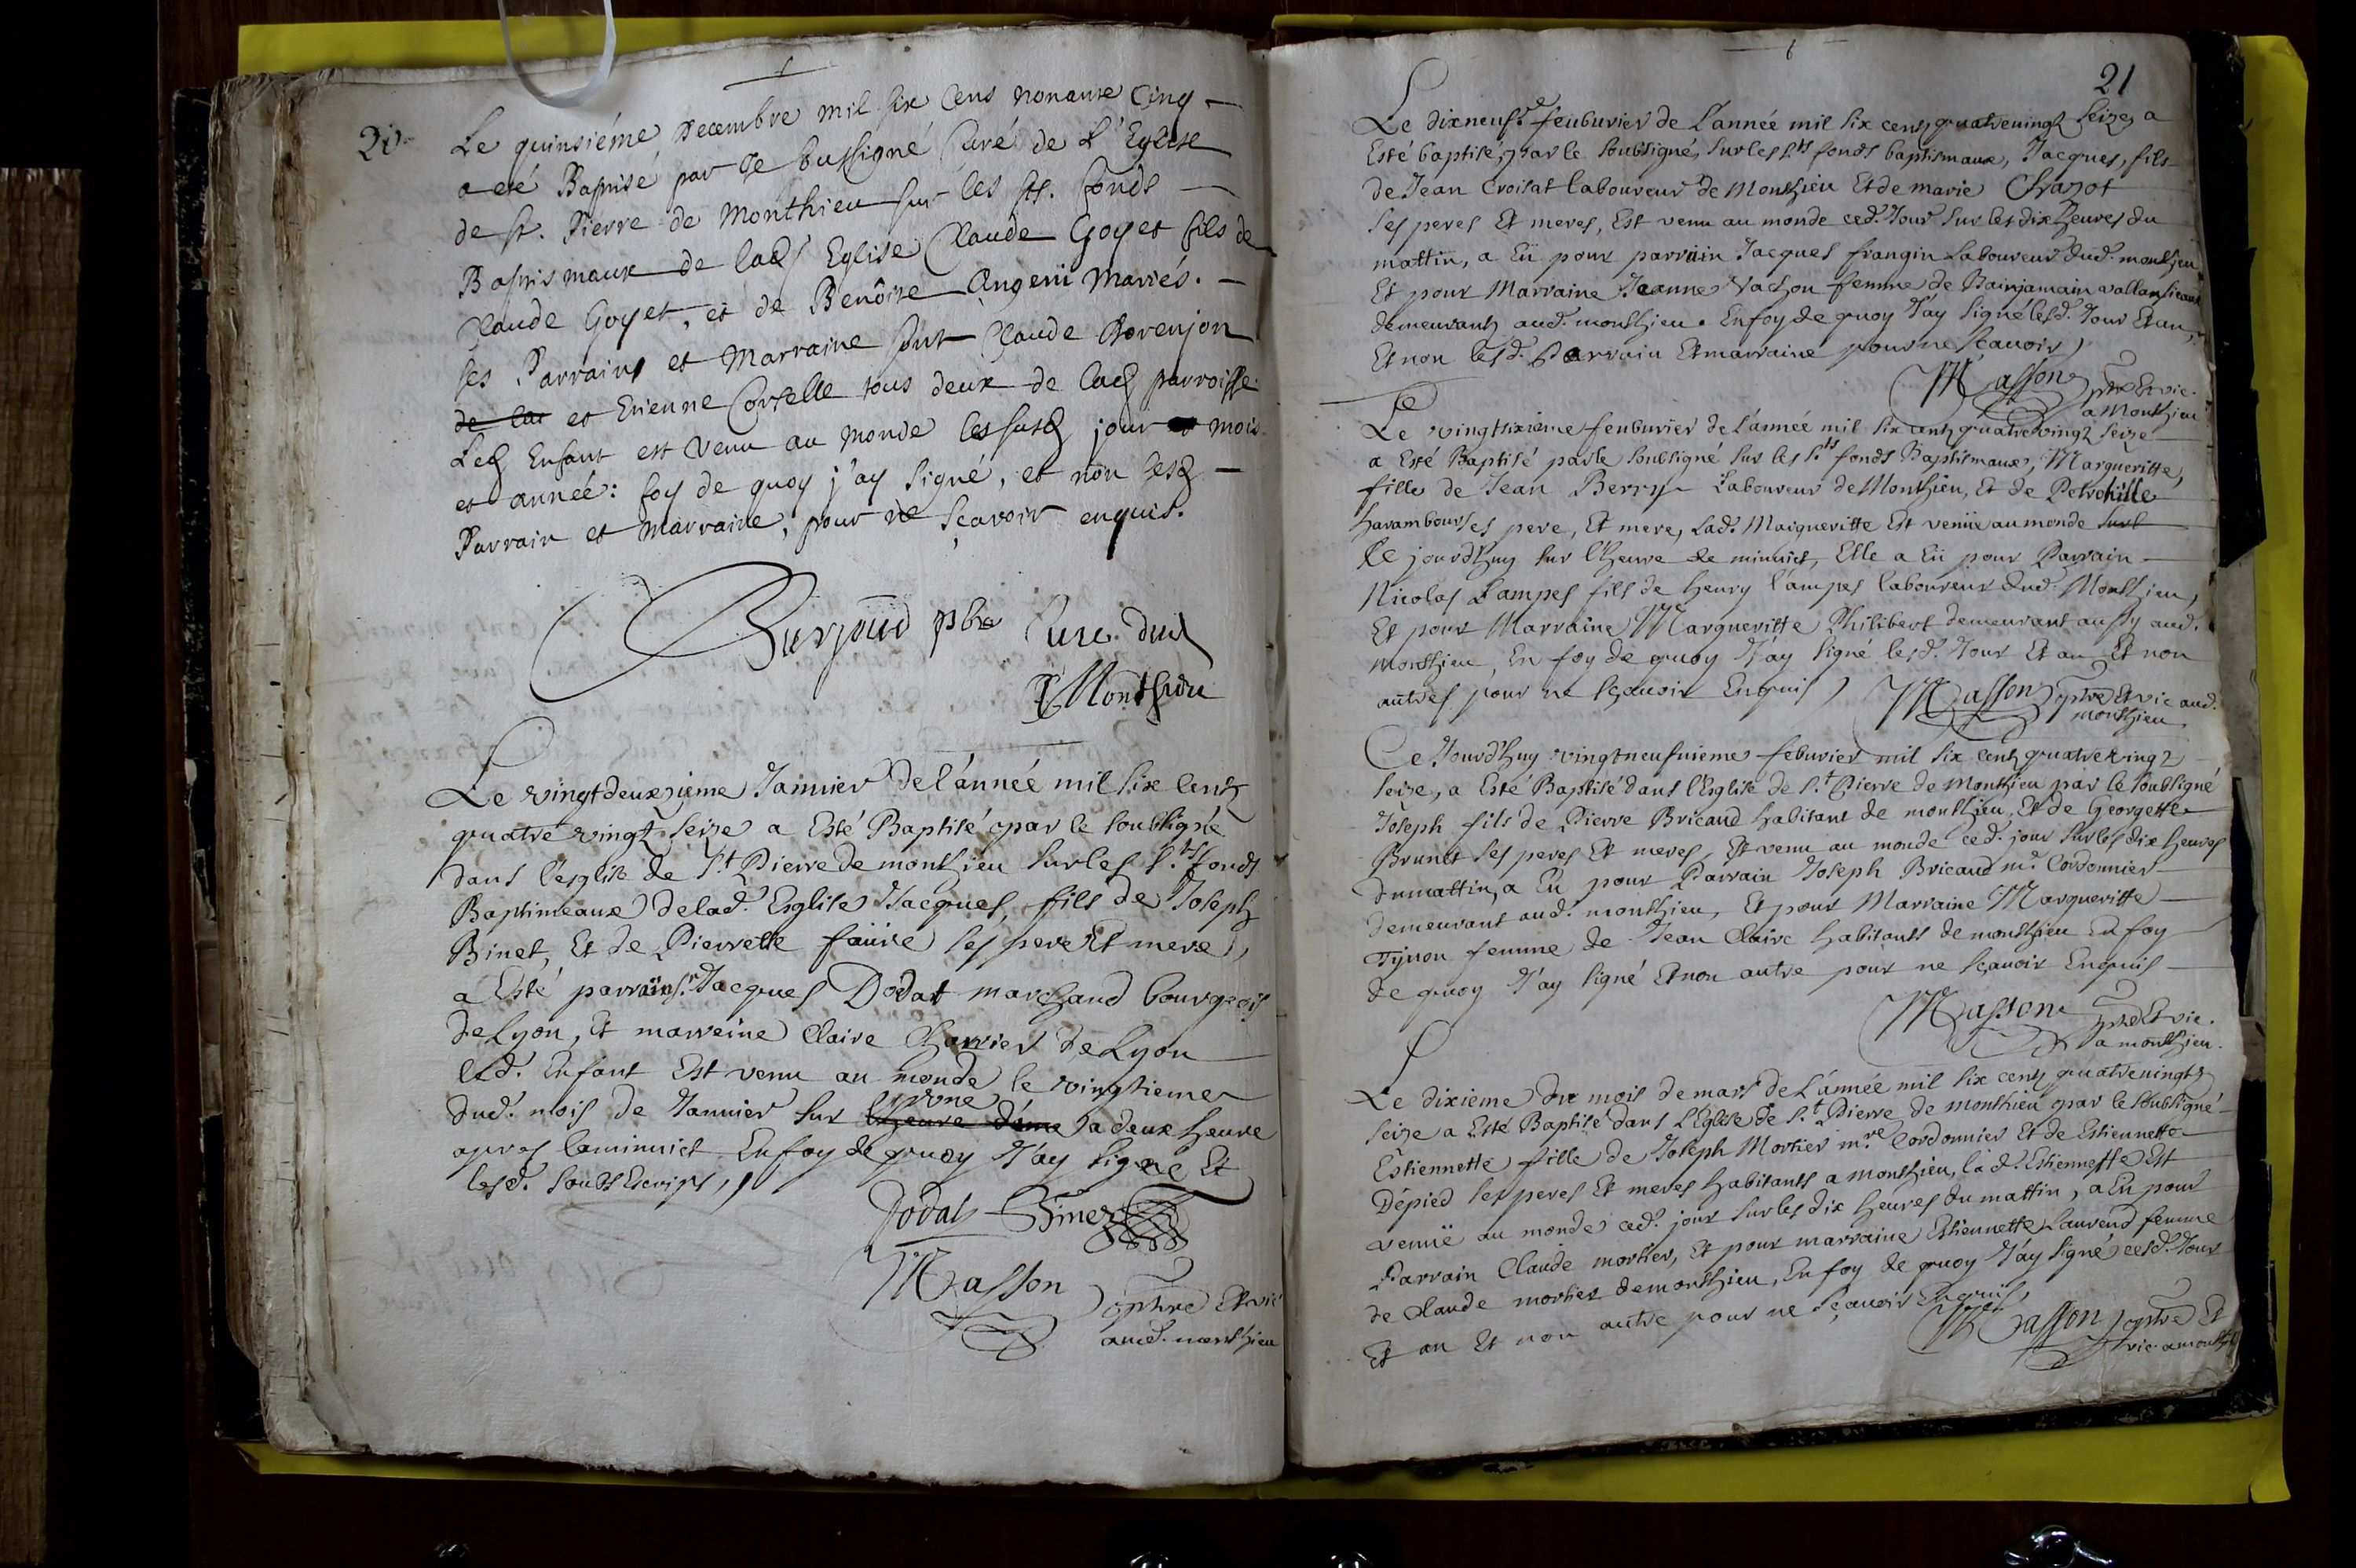 20
Le quinsiéme Decembre mil six Cens nonante Cinq
a eté Baptisé par Je soussigné Curé de L'Eglise
de St. Pierre de Monthieu sur les sts. fonds
Baptismaux de lad Eglise Claude Goyet fils de
Claude Goyet, et de Benôite Angenii Mariés.
ses Parrains et Marraine sont Claude
de lad et Etienne Cortelle tous deux de lad parroisse
Led Enfant est Venu au Monde les susd jour mois
et année: foy de quoy j'ay signé, et non lesd
Parrain et Marraine, pour ne sçavoir enquis.
pbre Curé dud
Monthieu
Le vingtdeuxzieme Janvier de l'année mil six centz
quatre vingtz seize a Esté Baptisé par le soubsigné
dans l'esglise de St Pierre de monthieu sur les sts fonds
Baptimeaux de lad. Esglise Jacques, fils de Joseph
Binet, Et de Pierrette faüre ses pere Et mere,
a Esté parrain sr. Jacques Dodat marchand bourgeois
de Lyon, Et marreine Claire Charrier de Lyon
led. Enfant Est venu au monde le vingtieme
dud. mois de Janvier sur l'heure d'une a deux heure
apres laminuict. En foy de quoy J'ay signé Et
lesd. soubsescripts,
Dodat Binet
Masson
ptre Et vic
aud. monthieu
21
Le dixneufe feubvrier de L'année mil six centz quatrevingtz seize a
Esté baptisé, par le soubsigné, sur les sts fonds baptismaux, Jacques, fils
de Jean Croisat laboureur de Monthieu Et de marie Chazot
ses peres Et meres, Est venu au monde ced. Jour sur les dix heures du
mattin, a Eü pour parrain Jacques frangin laboureur dud. monthieu
Et pour Marraine Jeanne Vachon femme de Bainjamain
demeurantz aud. monthieu. En foy de quoy J'ay signé lesd. Jour Et an,
Et non lesd. Parrain Et marraine pour ne sçavoir,
Masson ptre Et vic.
a Monthieu
Le vingtsixieme feubvrier de l'année mil six centz quatrevingtz seize
a Esté Baptisé par le soubsigné sur les sts fonds Baptismaux, Margueritte,
fille de Jean Berry Laboureur de Monthieu, Et de Petronille
harambour ses pere, Et mere, Lad. Margueritte Est venüe au monde surl
Ce jourd'huy sur l'heure de minuict, Elle a Eü pour Parrain
Nicolas Lampes fils de henry l'ampes laboureur dud. Monthieu,
Et pour Marraine Margueritte Philibert demeurant aussy aud.
monthieu, En foy de quoy J'ay signé lesd. Jour Et an Et non
autres pour ne sçavoir Enquis,
Masson ptre Et vic aud.
monthieu.
Ce Jourd'huy vingtneufuieme febvrier mil six centz quatrevingtz
seize, a Esté Baptisé dans l'Esglise de St Pierre de Monthieu par le soubsigné
Joseph fils de Pierre Bricaud habitant de monthieu, Et de Georgette
Brunet ses peres Et meres, Est venu au monde ced. jour sur les dix heures
du mattin, a Eu pour Parrain Joseph Bricaud me. Cordonnier
demeurant aud. monthieu, Et pour Marraine Margueritte
Tynon femme de Jean Claire habitants de monthieu En foy
de quoy J'ay signé Et non autre pour ne sçavoir Enquis
Masson ptre Et vic.
a monthieu.
Le dixieme du mois de mars de L'année mil six centz quatrevingtz
seize a Esté Baptisé dans L'Eglise de St Pierre de monthieu par le soubsigné
Estiennette fille de Joseph Mortier mre Cordonnier Et de Estiennette
Dépied ses peres Et meres habitants a monthieu, lad. Estiennette Est
venüe au monde ced. jour sur les dix heures du mattin, a Eu pour
Parrain Claude mortier, Et pour marraine Estiennette Laurend femme
de Claude mortier de monthieu, En foy de quoy J'ay signé cesd. Jour
Et an Et non autre pour ne sçavoir Enquis,
Masson ptre Et
vic. a month